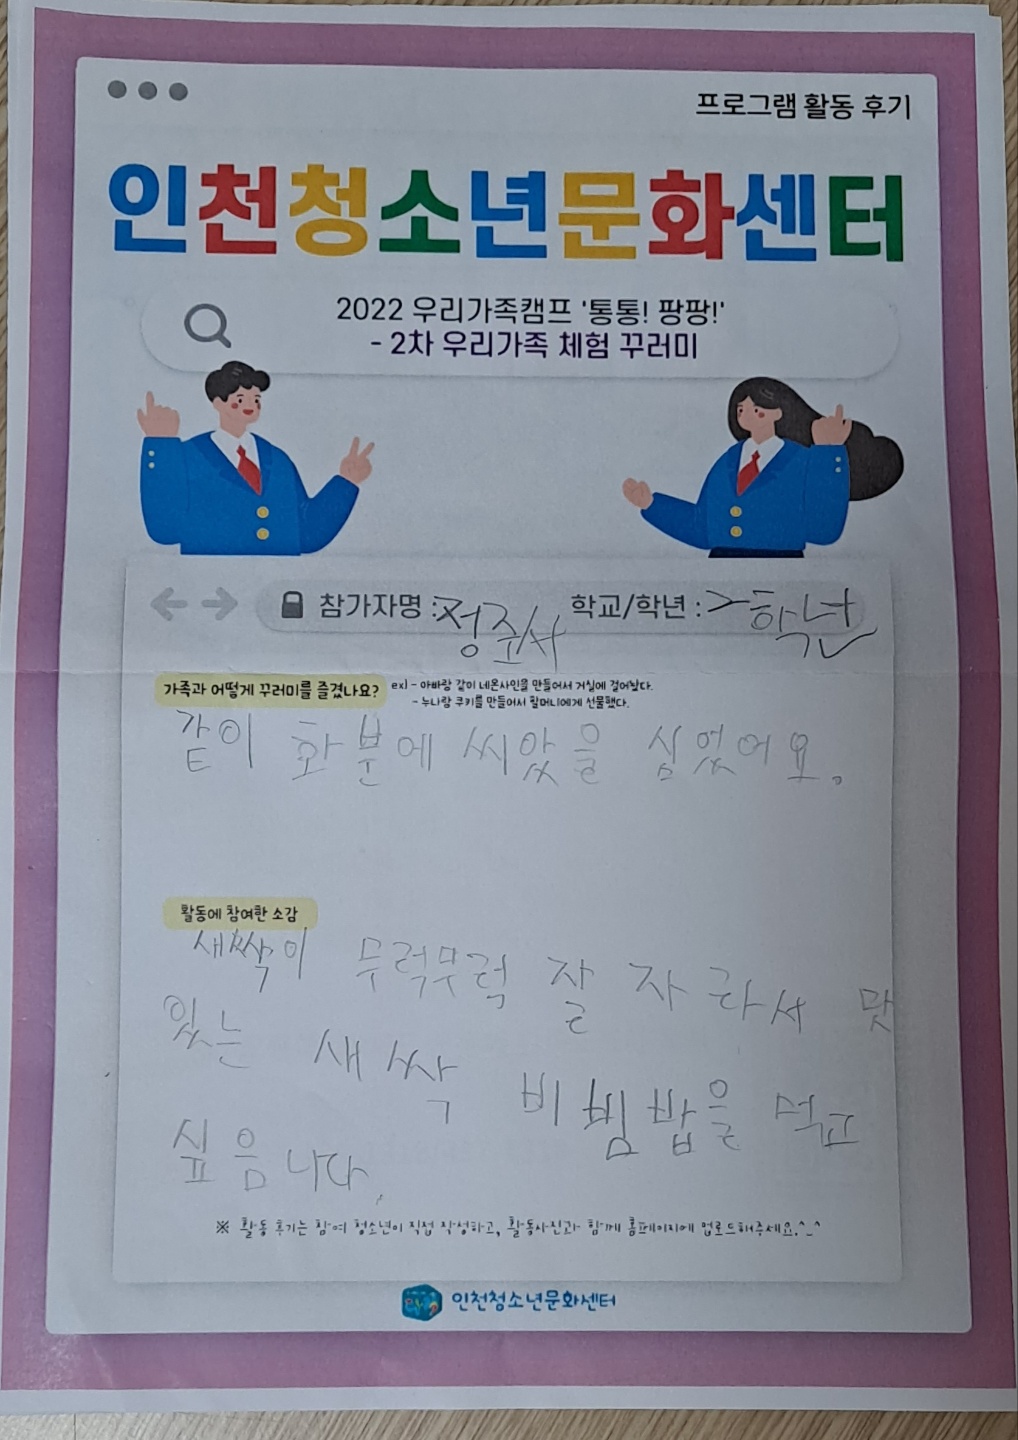 프로그램 활동 후기
인천청소년문화센터
2022 우리가족캠프 '통통! 팡팡!'
- 2차 우리가족 체험 꾸러미
참가자명 : 정준서 학교/학년 : 2학년
가족과 어떻게 꾸러미를 즐겼나요? ex) - 아빠랑 같이 네온사인을 만들어서 거실에 걸어뒀다.
- 누나랑 쿠키를 만들어서 할머니에게 선물했다.
같이 화분에 씨앖을 심었어요.
활동에 참여한 소감
새싹이 무럭무럭 잘 자라서 맛
있는 새싹 비빔밥을 먹고
싶음니다.
※ 활동 후기는 참여 청소년이 직접 작성하고, 활동사진과 함께 홈페이지에 업로드해주세요.^_^
인천청소년문화센터